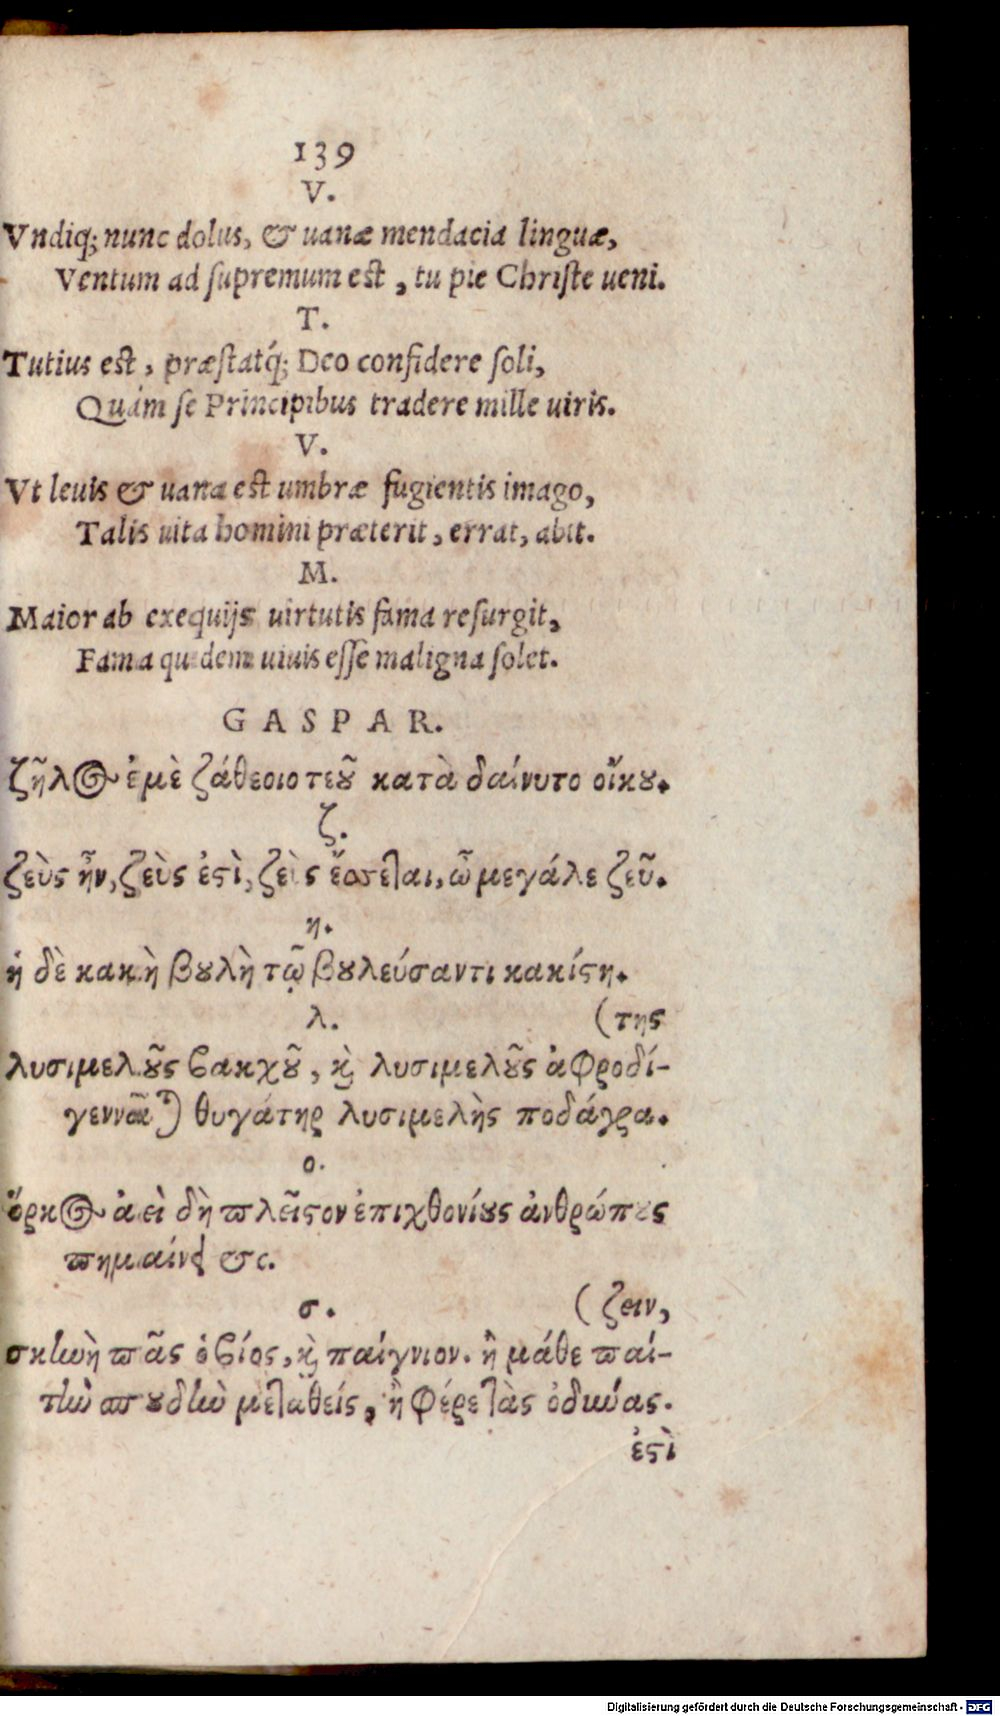 139
V.
Vndiq; nunc dolus, & uanæ mendacia linguæ,
Ventum ad supremum est, tu pie Christe ueni.
T.
Tutius est, præstatq́; Deo confidere soli,
Quám se Principibus tradere mille uiris.
V.
Vt leuis & uana est umbræ fugientis imago,
Talis uita homini præterit, errat, abit.
M.
Maior ab exequijs uirtutis fama resurgit,
Fama quidem uiuis esse maligna solet.
GASPAR.
ζῆλος ἐμὲ ζάθεοιο τεȣ͂ κατὰ δαίνυτο οἴκȣ.
ζ.
ζεὺς ἦν, ζεὺς ἐςὶ, ζεὺς ἔσσεται, ὦ μεγάλε ζεῦ.
η.
ἡ δὲ κακὴ βȣλὴ τῷ βȣλεύσαντι κακίςη.
λ. (της
λυσιμελȣ͂ς βακχȣ͂, ϗ̀ λυσιμελȣ͂ς ἀφροδί-
γεννᾶται θυγάτηρ λυσιμελὴς ποδάγρα.
ο.
ὅρκος ἀεὶ δὴ πλεῖςον ἐπιχθονίȣς ἀνθρώπȣς
πημαίνει &c.
σ. (ζειν,
σκηνὴ πᾶς ὁ βίος, ϗ̀ παίγνιον. ἢ μάθε παί-
τὴν σπȣδὴν μεταθείς, ἢ φέρε τὰς ὀδύνας.
ἐςὶ
Digitalisierung gefördert durch die Deutsche Forschungsgemeinschaft - DFG